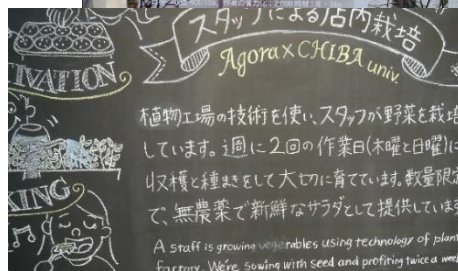 スタッフによる店内栽培
Agora×CHIBA univ.
IVATION
植物工場の技術を使い、スタッフが野菜を栽培
しています。週に2回の作業日(木曜と日曜)に
収穫と種まきをして大切に育てています。数量限定
で、無農薬で新鮮なサラダとして提供していま
KING
A staff is growing vegetables using technology of plant
factory. We're sowing with seed and profiting twice a week